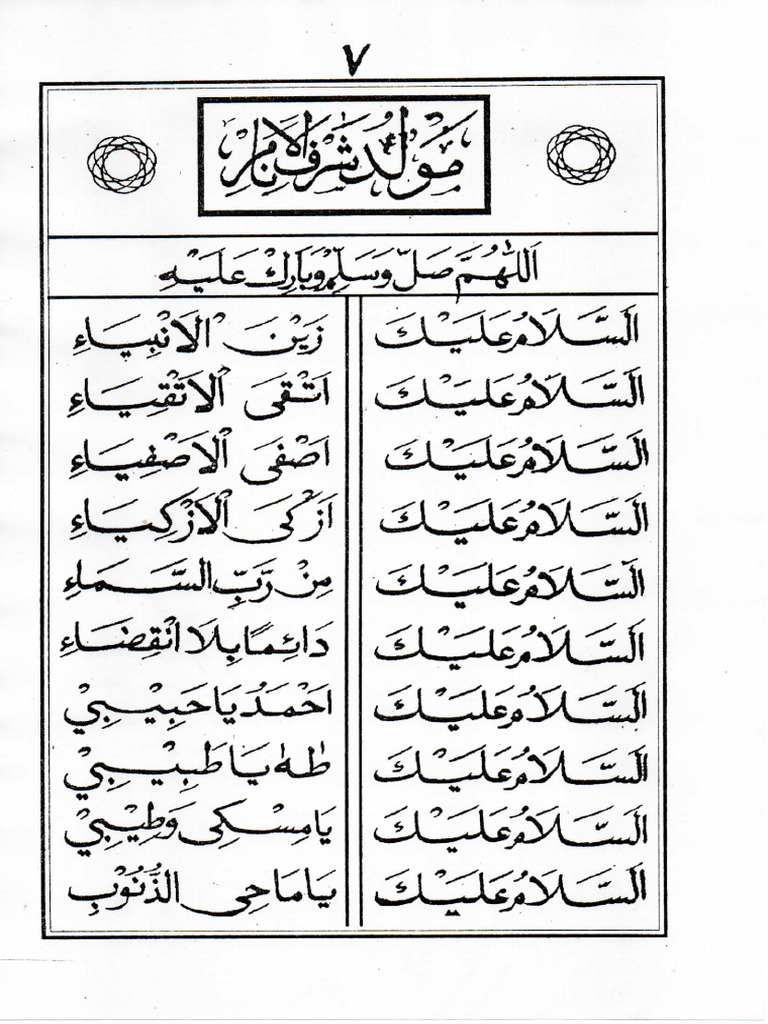 ٧
مَوْلِدُ شَرَفِ الْاَنَامِ
اَللّٰهُمَّ صَلِّ وَسَلِّمْ وَبَارِكْ عَلَيْهِ
اَلسَّلَامُ عَلَيْكَ زَيْنَ الْاَنْبِيَاءِ
اَلسَّلَامُ عَلَيْكَ اَتْقَى الْاَتْقِيَاءِ
اَلسَّلَامُ عَلَيْكَ اَصْفَى الْاَصْفِيَاءِ
اَلسَّلَامُ عَلَيْكَ اَزْكَى الْاَزْكِيَاءِ
اَلسَّلَامُ عَلَيْكَ مِنْ رَّبِّ السَّمَاءِ
اَلسَّلَامُ عَلَيْكَ دَائِمًا بِلَا انْقِضَاءِ
اَلسَّلَامُ عَلَيْكَ اَحْمَدُ يَا حَبِيْبِيْ
اَلسَّلَامُ عَلَيْكَ طٰهٰ يَا طَبِيْبِيْ
اَلسَّلَامُ عَلَيْكَ يَا مِسْكِى وَطِيْبِيْ
اَلسَّلَامُ عَلَيْكَ يَا مَاحِى الذُّنُوْبِ